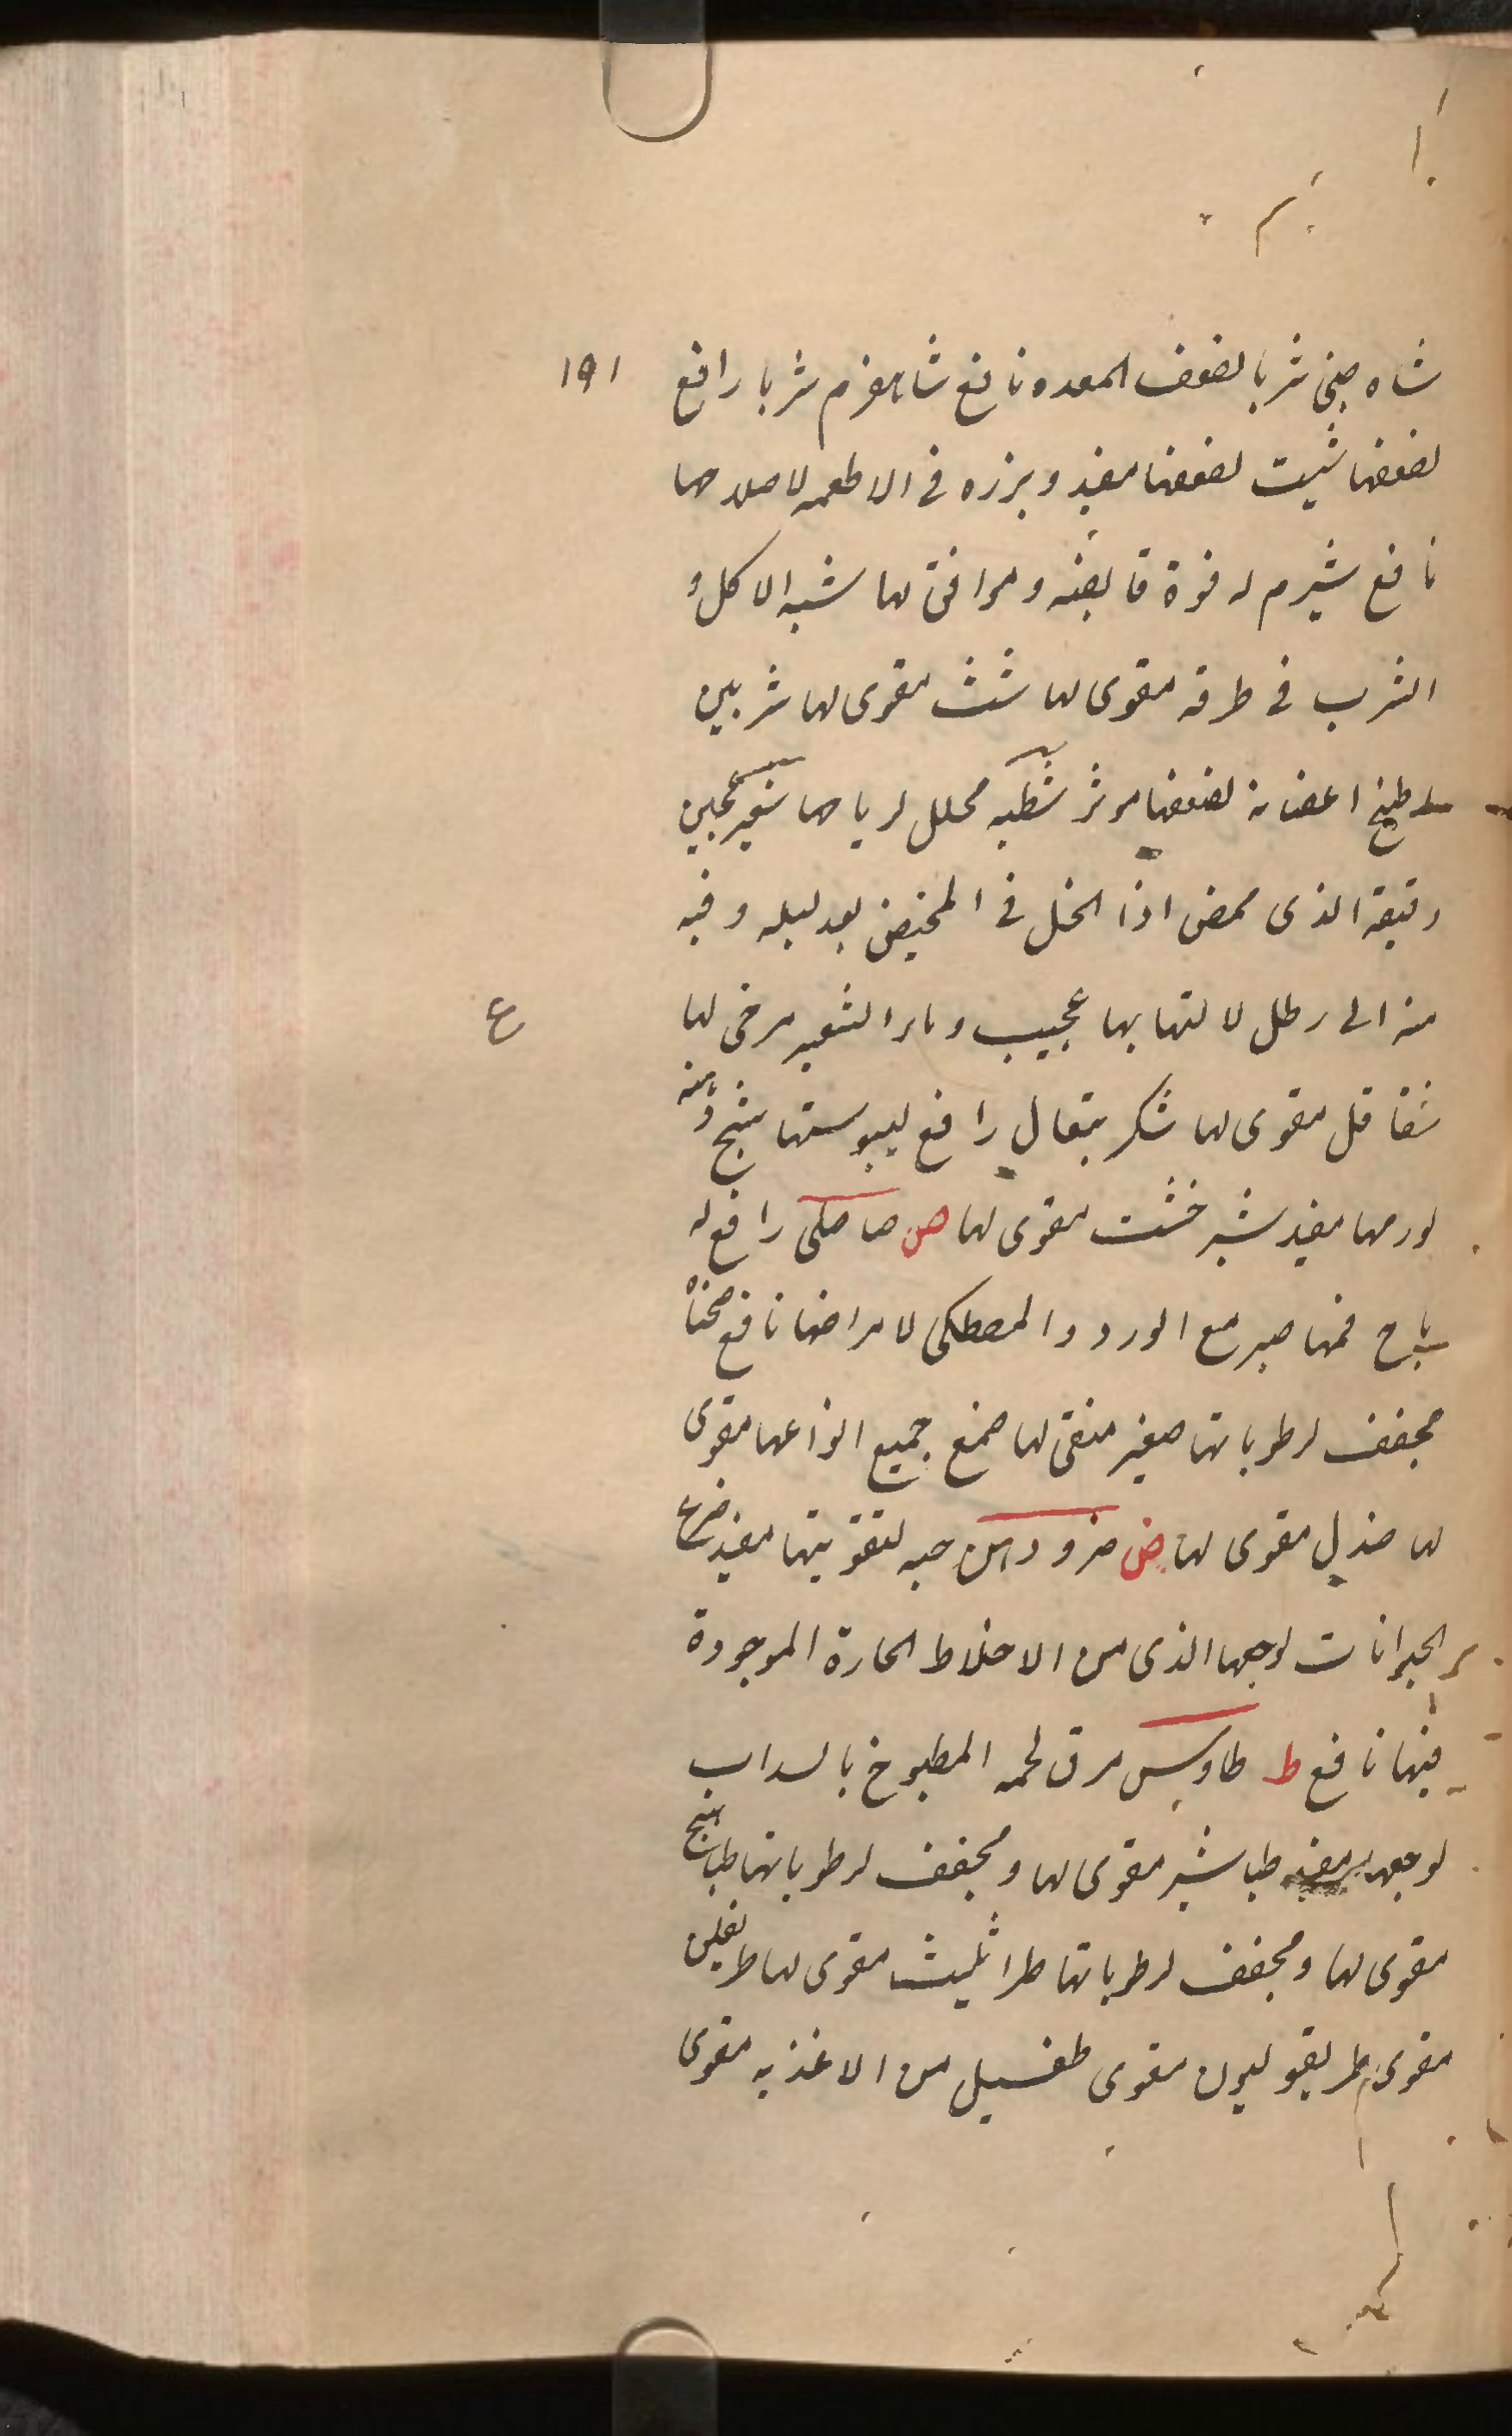 ١٩١
شاه صنى شربا لضعف المعده نافع شاهفرم شربا رافع
لضعفها شبت لضعفها مفيد وبزره فى الاطعمه لاصلاحها
نافع شبرم له قوة قابضه وموافق لها شبه الاكل و
الشرب فى ظرفه مقوى لها شث مقوى لها شربين
طبيخ اغصانه لضعفها موثر شطيه محلل لرياحها شعير عجين
دقيقه الذى محمض اذا انحل فى المخيض بعد ليله وفيه
منه الى رطل لالتهابها عجيب وماء الشعير مرخى لها
ع
شقاقل مقوى لها شكر تيغال رافع ليبوستها شيح دهنه
لورمها مفيد شيرخشت مقوى لها ص صاصلى رافع له
رياح فمها صبر مع الورد والمصطكى لامراضها نافع صحناه
مجفف لرطوباتها صغير منقى لها صمغ جميع انواعها مقوى
لها صندل مقوى لها ض ضرو دهن حبه لتقويتها مفيد ضرع
الحيوانات لوجعها الذى من الاخلاط الحارة الموجودة
فيها نافع ط طاوس مرق لحمه المطبوخ بالسداب
لوجعها مفيد طباشير مقوى لها ومجفف لرطوباتها طباهيج
مقوى لها ومجفف لرطوباتها طراثيث مقوى لها طريفلن
مقوى طريقوليون مقوى طفسيل من الاغذيه مقوى